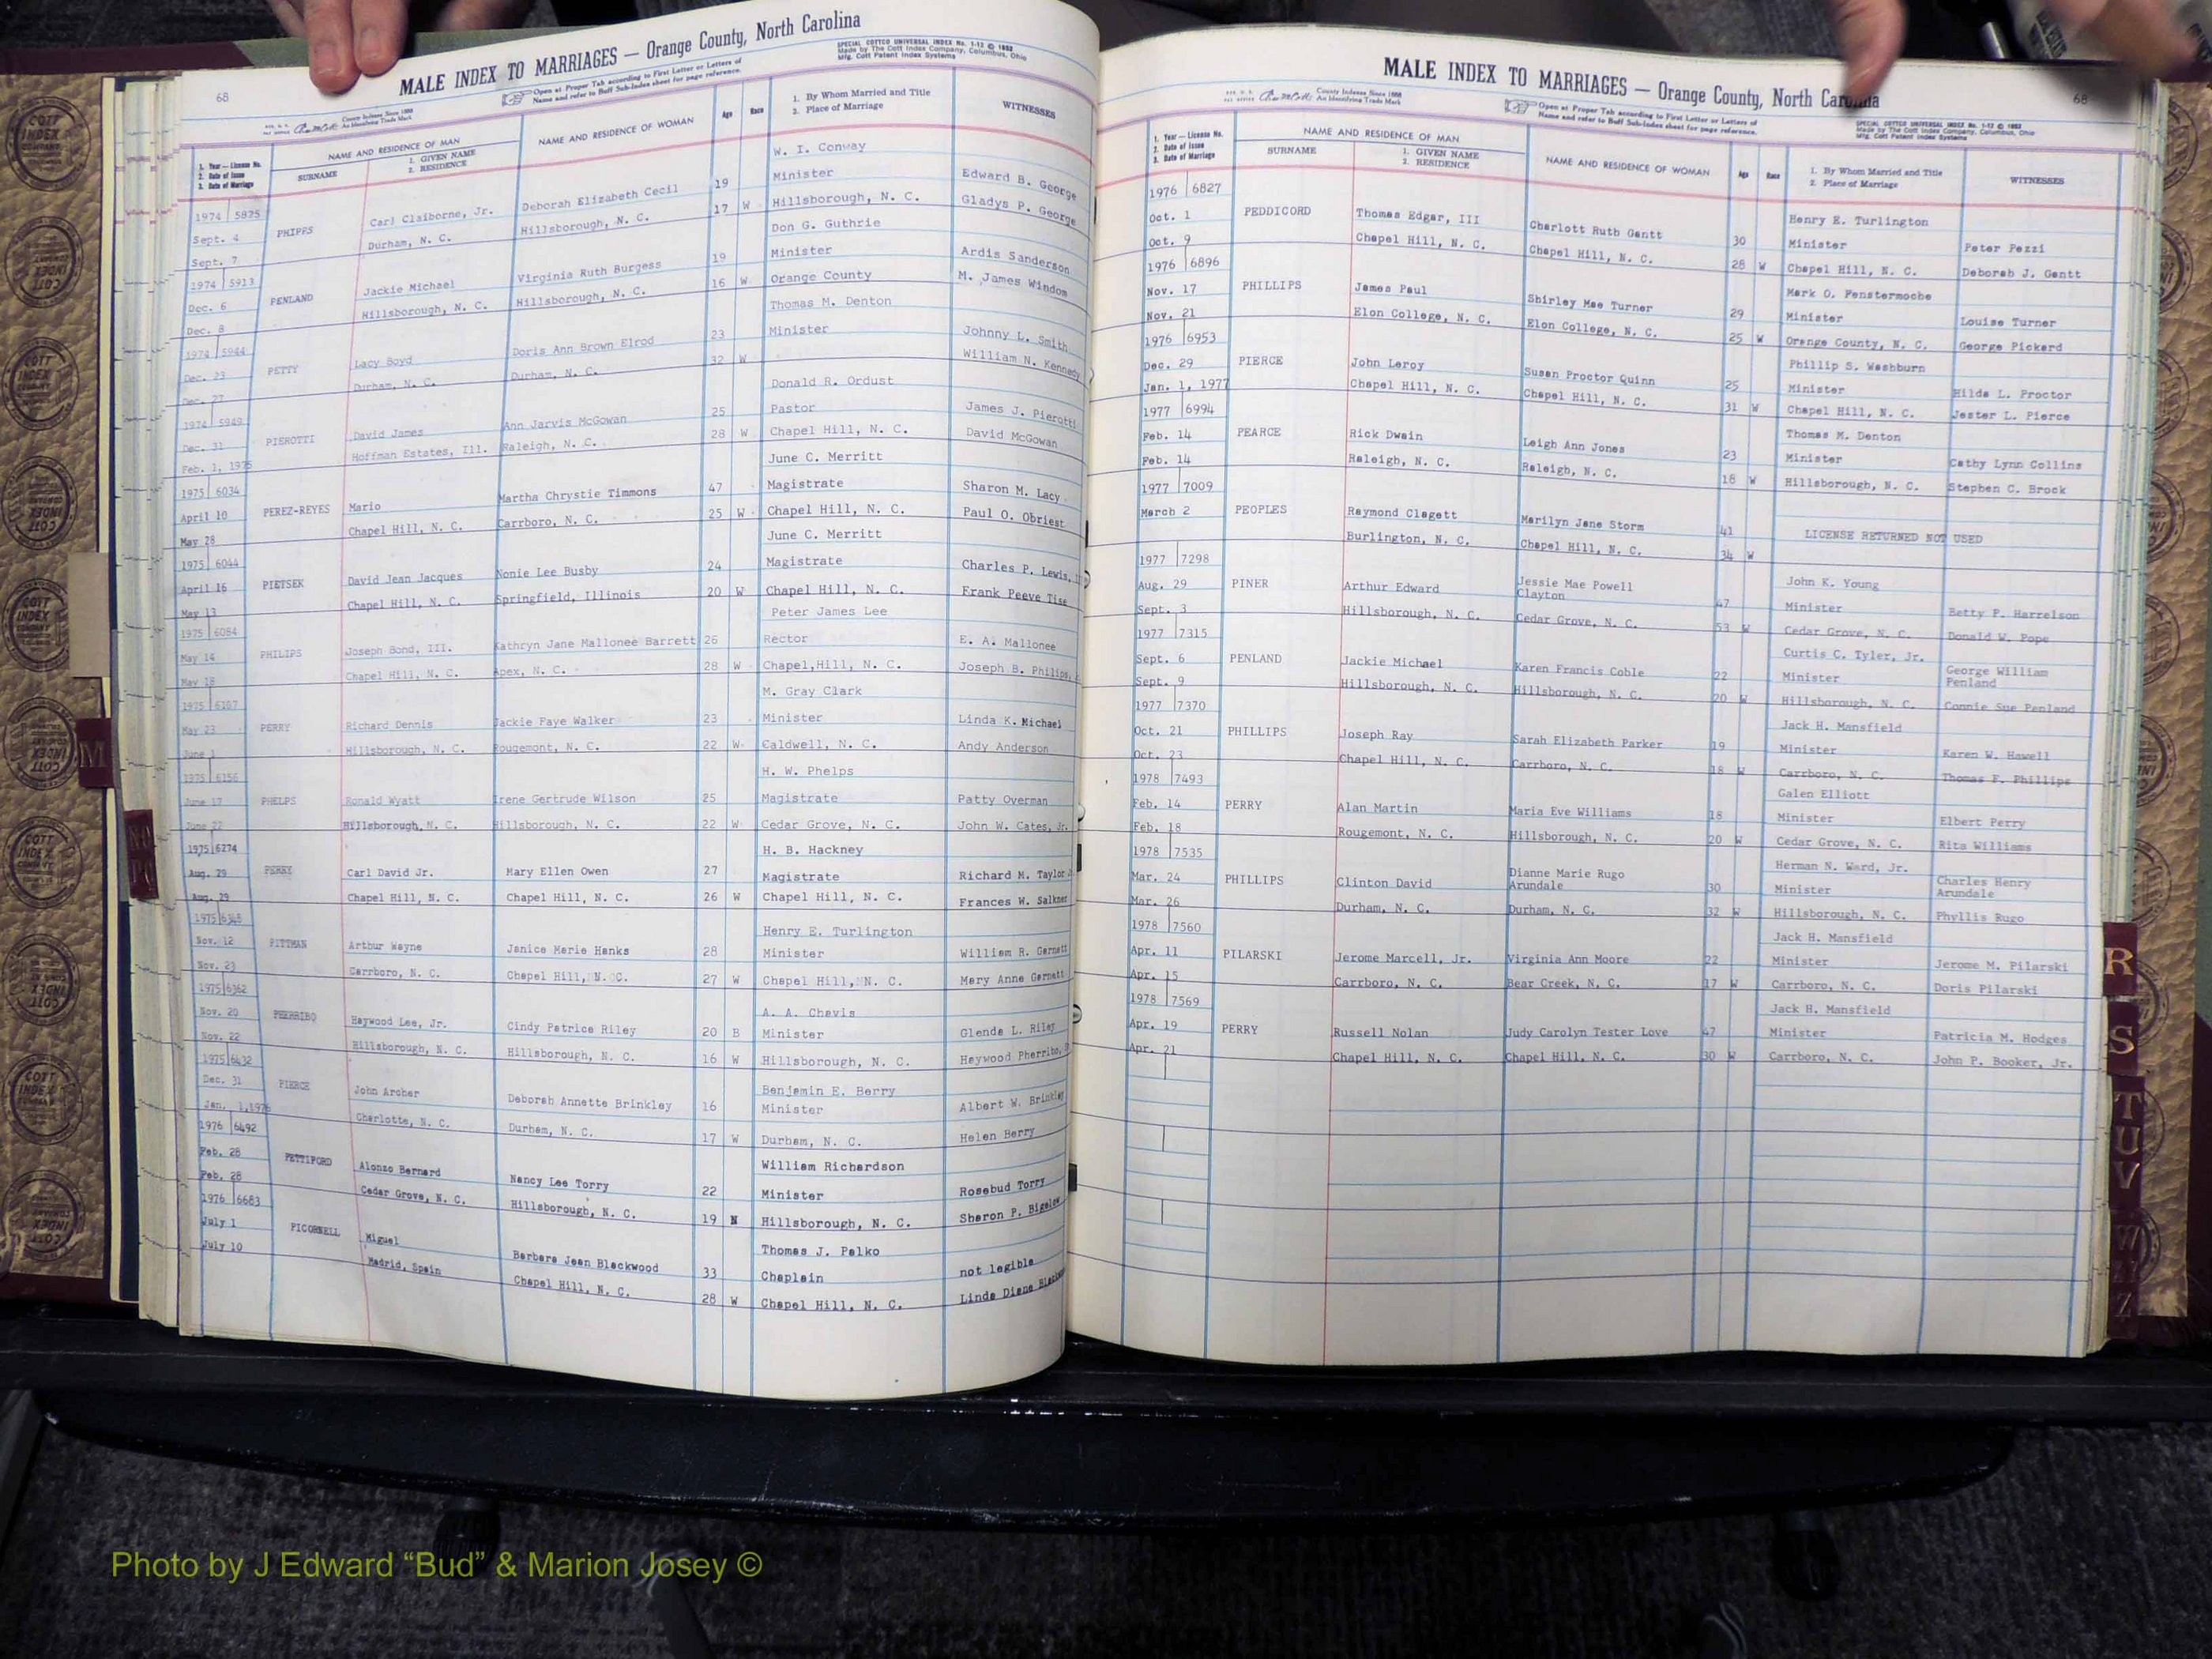 68
MALE INDEX TO MARRIAGES — Orange County, North Carolina
SPECIAL COTTCO UNIVERSAL INDEX No. 1-12 © 1952
Made by The Cott Index Company, Columbus, Ohio
Mfg. Cott Patent Index Systems
Open at Proper Tab according to First Letter or Letters of
Name and refer to Buff Sub-Index sheet for page reference.
County Indexes Since 1888
An Identifying Trade Mark
1. Year — License No.
2. Date of Issue
3. Date of Marriage
NAME AND RESIDENCE OF MAN
SURNAME
1. GIVEN NAME
2. RESIDENCE
NAME AND RESIDENCE OF WOMAN
Age
Race
1. By Whom Married and Title
2. Place of Marriage
WITNESSES
W. I. Conway
1974 5875 Carl Claiborne, Jr. Deborah Elizabeth Cecil 19 Minister Edward B. George
Sept. 4 PHIPPS Durham, N. C. Hillsborough, N. C. 17 W Hillsborough, N. C. Gladys P. George
Sept. 7 Don G. Guthrie
1974 5913 Jackie Michael Virginia Ruth Burgess 19 Minister Ardis Sanderson
Dec. 6 PENLAND Hillsborough, N. C. Hillsborough, N. C. 16 W Orange County M. James Windom
Dec. 8 Thomas M. Denton
1974 5944 Lacy Boyd Doris Ann Brown Elrod 23 Minister Johnny L. Smith
Dec. 23 PETTY Durham, N. C. Durham, N. C. 32 W William N. Kennedy
Dec. 27 Donald R. Ordust
1974 5949 David James Ann Jarvis McGowan 25 Pastor James J. Pierotti
Dec. 31 PIEROTTI Hoffman Estates, Ill. Raleigh, N. C. 28 W Chapel Hill, N. C. David McGowan
Feb. 1, 1975 June C. Merritt
1975 6034 Mario Martha Chrystie Timmons 47 Magistrate Sharon M. Lacy
April 10 PEREZ-REYES Chapel Hill, N. C. Carrboro, N. C. 25 W Chapel Hill, N. C. Paul O. Obriest
May 28 June C. Merritt
1975 6044 David Jean Jacques Nonie Lee Busby 24 Magistrate Charles P. Lewis,
April 16 PIETSEK Chapel Hill, N. C. Springfield, Illinois 20 W Chapel Hill, N. C. Frank Peeve Tise
May 13 Peter James Lee
1975 6084 Joseph Bond, III. Kathryn Jane Mallonee Barrett 26 Rector E. A. Mallonee
May 14 PHILIPS Chapel Hill, N. C. Apex, N. C. 28 W Chapel,Hill, N. C. Joseph B. Philips,
May 18 M. Gray Clark
1975 6107 Richard Dennis Jackie Faye Walker 23 Minister Linda K. Michael
May 23 PERRY Hillsborough, N. C. Rougemont, N. C. 22 W Caldwell, N. C. Andy Anderson
June 1 H. W. Phelps
1975 6156 Ronald Wyatt Irene Gertrude Wilson 25 Magistrate Patty Overman
June 17 PHELPS Hillsborough, N. C. Hillsborough, N. C. 22 W Cedar Grove, N. C. John W. Cates, Jr.
June 22 H. B. Hackney
1975 6274 Carl David Jr. Mary Ellen Owen 27 Magistrate Richard M. Taylor
Aug. 29 PERRY Chapel Hill, N. C. Chapel Hill, N. C. 26 W Chapel Hill, N. C. Frances W. Salkner
Aug. 29 Henry E. Turlington
1975 6348 Arthur Wayne Janice Marie Hanks 28 Minister William R. Garnett
Nov. 12 PITTMAN Carrboro, N. C. Chapel Hill, N. C. 27 W Chapel Hill, N. C. Mary Anne Garnett
Nov. 23 A. A. Chavis
1975 6362 Haywood Lee, Jr. Cindy Patrice Riley 20 B Minister Glenda L. Riley
Nov. 20 PHERRIBO Hillsborough, N. C. Hillsborough, N. C. 16 W Hillsborough, N. C. Haywood Pherribo,
Nov. 22 Benjamin E. Berry
1975 6432 John Archer Deborah Annette Brinkley 16 Minister Albert W. Brinkley
Dec. 31 PIERCE Charlotte, N. C. Durham, N. C. 17 W Durham, N. C. Helen Berry
Jan. 1,1976 William Richardson
1976 6492 Alonzo Bernard Nancy Lee Torry 22 Minister Rosebud Torry
Feb. 28 PETTIFORD Cedar Grove, N. C. Hillsborough, N. C. 19 N Hillsborough, N. C. Sharon P. Bigelow
Feb. 28 Thomas J. Palko
1976 6683 Miguel Barbara Jean Blackwood 33 Chaplain not legible
July 1 PICORNELL Madrid, Spain Chapel Hill, N. C. 28 W Chapel Hill, N. C. Linda Diane Blackwood
July 10
MALE INDEX TO MARRIAGES — Orange County, North Carolina
68
County Indexes Since 1888
An Identifying Trade Mark
Open at Proper Tab according to First Letter or Letters of
Name and refer to Buff Sub-Index sheet for page reference.
SPECIAL COTTCO UNIVERSAL INDEX No. 1-12 © 1952
Made by The Cott Index Company, Columbus, Ohio
Mfg. Cott Patent Index Systems
1. Year — License No.
2. Date of Issue
3. Date of Marriage
NAME AND RESIDENCE OF MAN
SURNAME
1. GIVEN NAME
2. RESIDENCE
NAME AND RESIDENCE OF WOMAN
Age
Race
1. By Whom Married and Title
2. Place of Marriage
WITNESSES
1976 6827 Henry E. Turlington
Oct. 1 PEDDICORD Thomas Edgar, III Charlott Ruth Gantt 30 Minister Peter Pezzi
Oct. 9 Chapel Hill, N. C. Chapel Hill, N. C. 28 W Chapel Hill, N. C. Deborah J. Gantt
1976 6896 Mark O. Fenstermoche
Nov. 17 PHILLIPS James Paul Shirley Mae Turner 29 Minister Louise Turner
Nov. 21 Elon College, N. C. Elon College, N. C. 25 W Orange County, N. C. George Pickard
1976 6953 Phillip S. Washburn
Dec. 29 PIERCE John Leroy Susan Proctor Quinn 25 Minister Hilda L. Proctor
Jan. 1, 1977 Chapel Hill, N. C. Chapel Hill, N. C. 31 W Chapel Hill, N. C. Jester L. Pierce
1977 6994 Thomas M. Denton
Feb. 14 PEARCE Rick Dwain Leigh Ann Jones 23 Minister Cathy Lynn Collins
Feb. 14 Raleigh, N. C. Raleigh, N. C. 18 W Hillsborough, N. C. Stephen C. Brock
1977 7009
March 2 PEOPLES Raymond Clegett Marilyn Jane Storm 41 LICENSE RETURNED NOT USED
Burlington, N. C. Chapel Hill, N. C. 34 W
1977 7298 John K. Young
Aug. 29 PINER Arthur Edward Jessie Mae Powell
Clayton 47 Minister Betty P. Harrelson
Sept. 3 Hillsborough, N. C. Cedar Grove, N. C. 53 W Cedar Grove, N. C. Donald W. Pope
1977 7315 Curtis C. Tyler, Jr.
Sept. 6 PENLAND Jackie Michael Karen Francis Coble 22 Minister George William
Penland
Sept. 9 Hillsborough, N. C. Hillsborough, N. C. 20 W Hillsborough, N. C. Connie Sue Penland
1977 7370 Jack H. Mansfield
Oct. 21 PHILLIPS Joseph Ray Sarah Elizabeth Parker 19 Minister Karen W. Hawell
Oct. 23 Chapel Hill, N. C. Carrboro, N. C. 18 W Carrboro, N. C. Thomas F. Phillips
1978 7493 Galen Elliott
Feb. 14 PERRY Alan Martin Maria Eve Williams 18 Minister Elbert Perry
Feb. 18 Rougemont, N. C. Hillsborough, N. C. 20 W Cedar Grove, N. C. Rita Williams
1978 7535 Herman N. Ward, Jr.
Mar. 24 PHILLIPS Clinton David Dianne Marie Rugo
Arundale 30 Minister Charles Henry
Arundale
Mar. 26 Durham, N. C. Durham, N. C. 32 W Hillsborough, N. C. Phyllis Rugo
1978 7560 Jack H. Mansfield
Apr. 11 PILARSKI Jerome Marcell, Jr. Virginia Ann Moore 22 Minister Jerome M. Pilarski
Apr. 15 Carrboro, N. C. Bear Creek, N. C. 17 W Carrboro, N. C. Doris Pilarski
1978 7569 Jack H. Mansfield
Apr. 19 PERRY Russell Nolan Judy Carolyn Tester Love 47 Minister Patricia M. Hodges
Apr. 21 Chapel Hill, N. C. Chapel Hill, N. C. 30 W Carrboro, N. C. John P. Booker, Jr.
M
R
S
T
U
V
W
Z
COTT
INDEX
COMPANY
Photo by J Edward “Bud” & Marion Josey ©